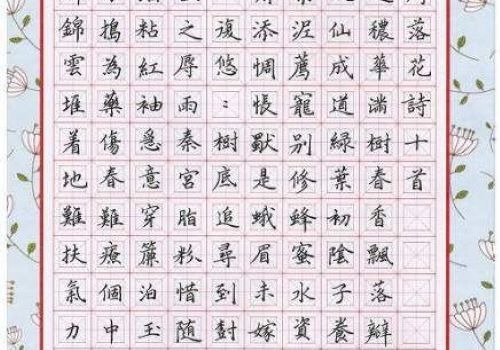 落花詩十首
穠華滿樹春香飄落瓣
仙成道綠葉初陰子養
泥薦寵別修蜂蜜水資
添惆悵歎是蛾眉未嫁
復悠：樹底追尋到對
之辱雨秦宮脂粉惜随
粘紅袖惹意穿簾泊玉
搗為藥傷春難療個中
錦雲堆着地難扶氣力